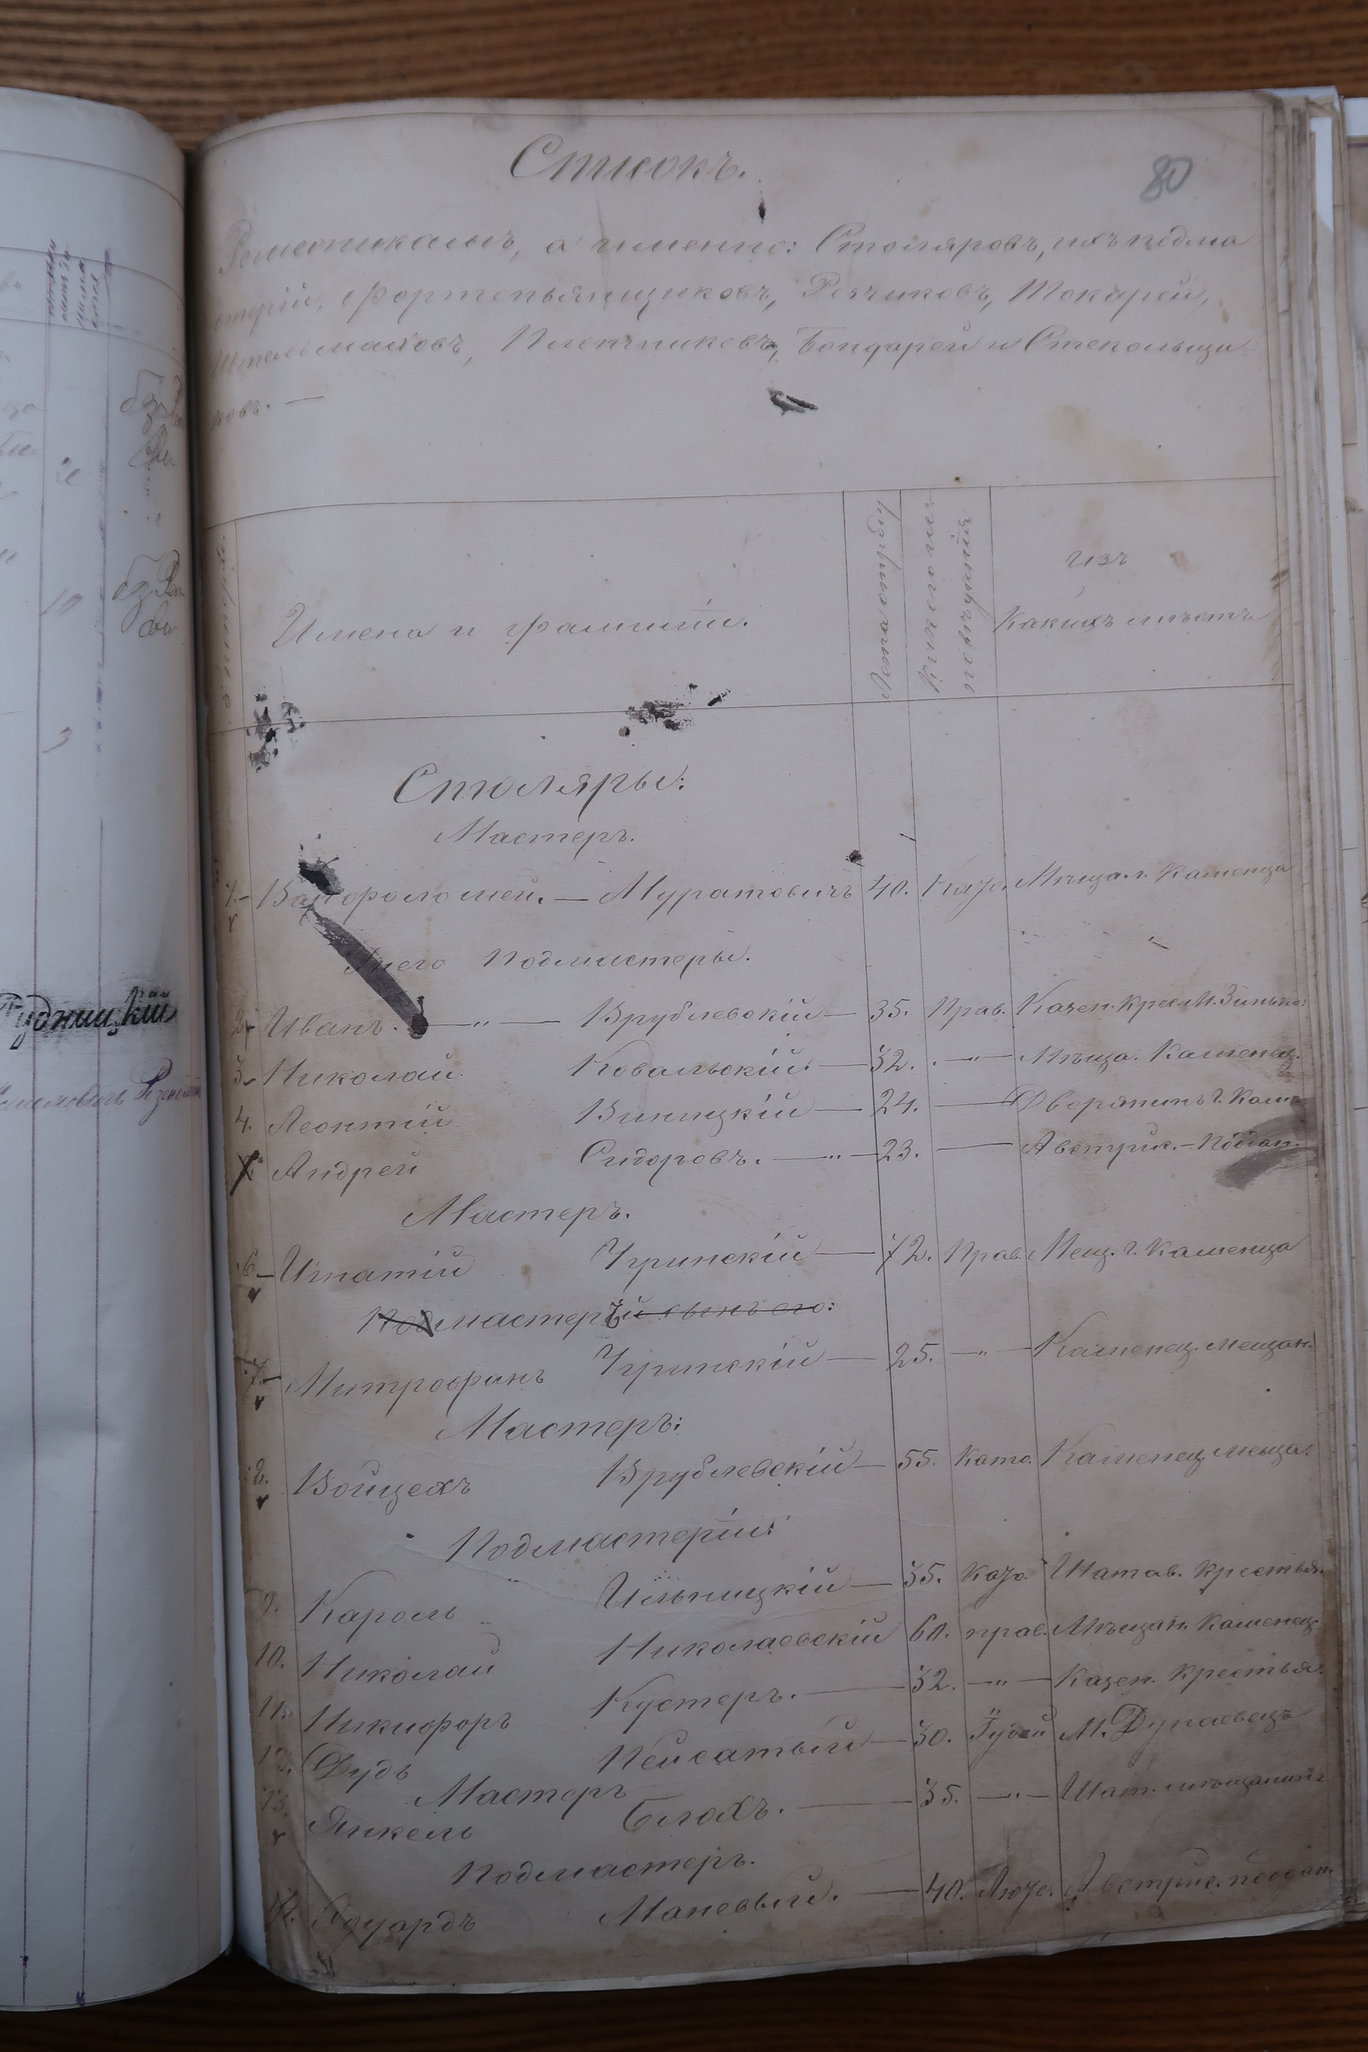 Списокъ.
80
Ремесникамъ, а именно: Столяровъ, ихъ подма
стерій, фортепьянщиковъ, Резчиковъ, Токарей,
Штельмаховъ, Плотниковъ, Бондарей и Стекольщи
ковъ. —
Имена и фамиліи.
Какого ис
повѣданія
изъ
какихъ мѣстъ
Столяры:
Мастеръ.
1. Варфоломей. — Муратовичъ 40. Мѣща. г. Каменца
У него подмастеры.
2. Иванъ. —"— Врублевскій — 35. Прав. Казен. крес. М. Зинько:
3. Николай Ковальскій. — 32. —"— Мѣща. Каменец.
4. Леонтій Виницкій — 24. — Дворянинъ г. Каме
Андрей Сидоровъ. —"— 23. — Австрис. — поддан.
Мастеръ.
6. Игнатій Угринскій — 72. Прав. Мещ. г. Каменца
Подмастерій сынъ его:
7. Митрофанъ Угринскій — 25. —"— Каменец. мещан.
Мастеръ:
Войцехъ Врублевскій — 55. Като. Каменец. меща.
Подмастеріи:
9. Кароль Ильницкій — 35. Шатав. крестья.
10. Николай Николаевскій 60. прав. Мѣщан. Каменец.
11. Никифоръ Кустеръ. — 32. —"— Казен. крестья.
12. Дудь Пейсатый — 30. Іудей М. Дунаевецъ
Мастеръ
13. Янкель Блохъ. — 35. —"— Шат. мѣщанинъ
Подмастеръ.
Эдуардъ Маневый. — 40. Люте. Австрис. поддан.
Рудницкій
10
3